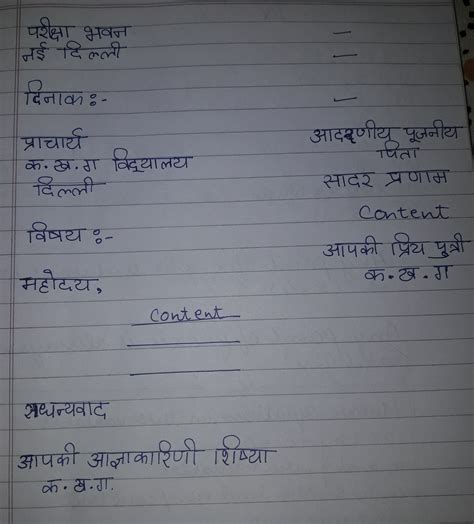 परीक्षा भवन
नई दिल्ली
दिनाक :-
प्राचार्य
क.ख.ग विद्यालय
दिल्ली
विषय :-
महोदय,
content
सधन्यवाद
आपकी आज्ञाकारिणी शिष्या
क.ख.ग.
आदरणीय पूजनीय
पिता
सादर प्रणाम
Content
आपकी प्रिय पुत्री
क.ख.ग